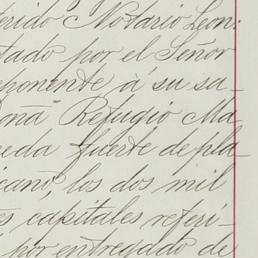 erido Notario Leon:
tado por el Señor
eponente á su sa-
oña Refugio Ma
eda fuerte de pla
icano, los dos mil
es capitales referi-
por entregado de